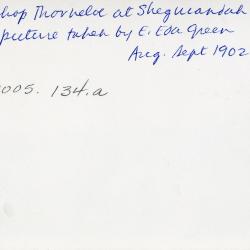 hop Thorneloe at Sheguiandah
picture taken by E. Eda Green
Aug. Sept 1902
005. 134.a